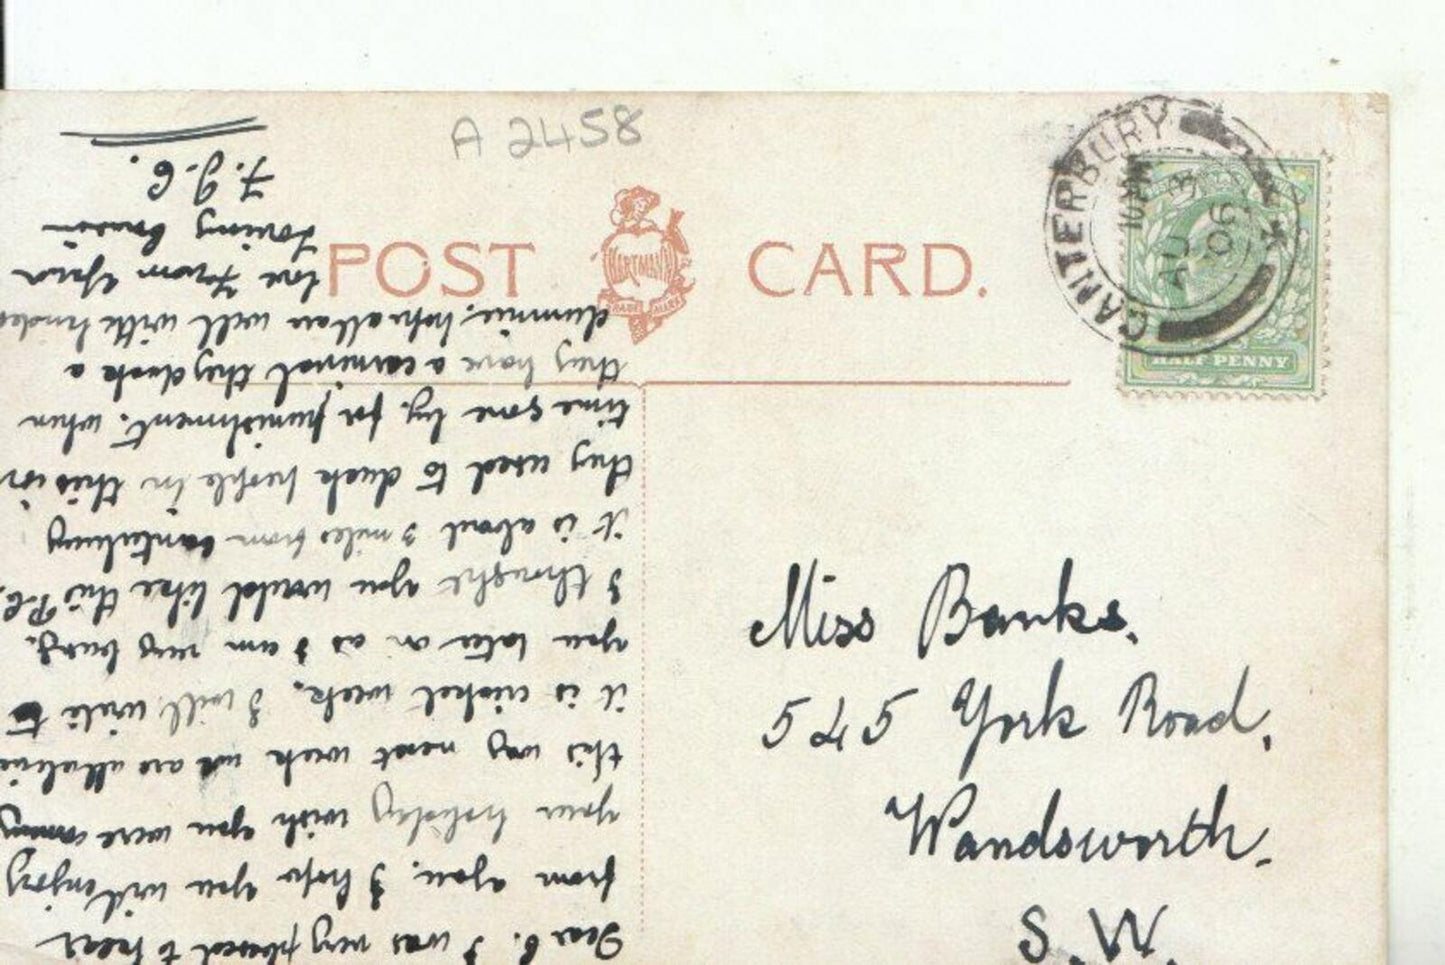 A 2458
POST CARD.
HARTMANN
TRADE MARK
CANTERBURY
10 PM
AU 3
06
HALF PENNY
Miss Banks.
545 York Road,
Wandsworth.
S.W.
Dear C. I was very pleased to hear
from you, I hope you will enjoy
your holiday wish you were coming
this way next week we are all alive
it is cricket week. I will write to
you later on as I am very busy.
I thought you would like this P.C.
it is about 3 miles from Canterbury
they used to duck people in this in
time gone by, for punishment, when
they have a carnival they duck a
dummie, hope all are well with kindest
love from your
loving cousin
F. J. C.